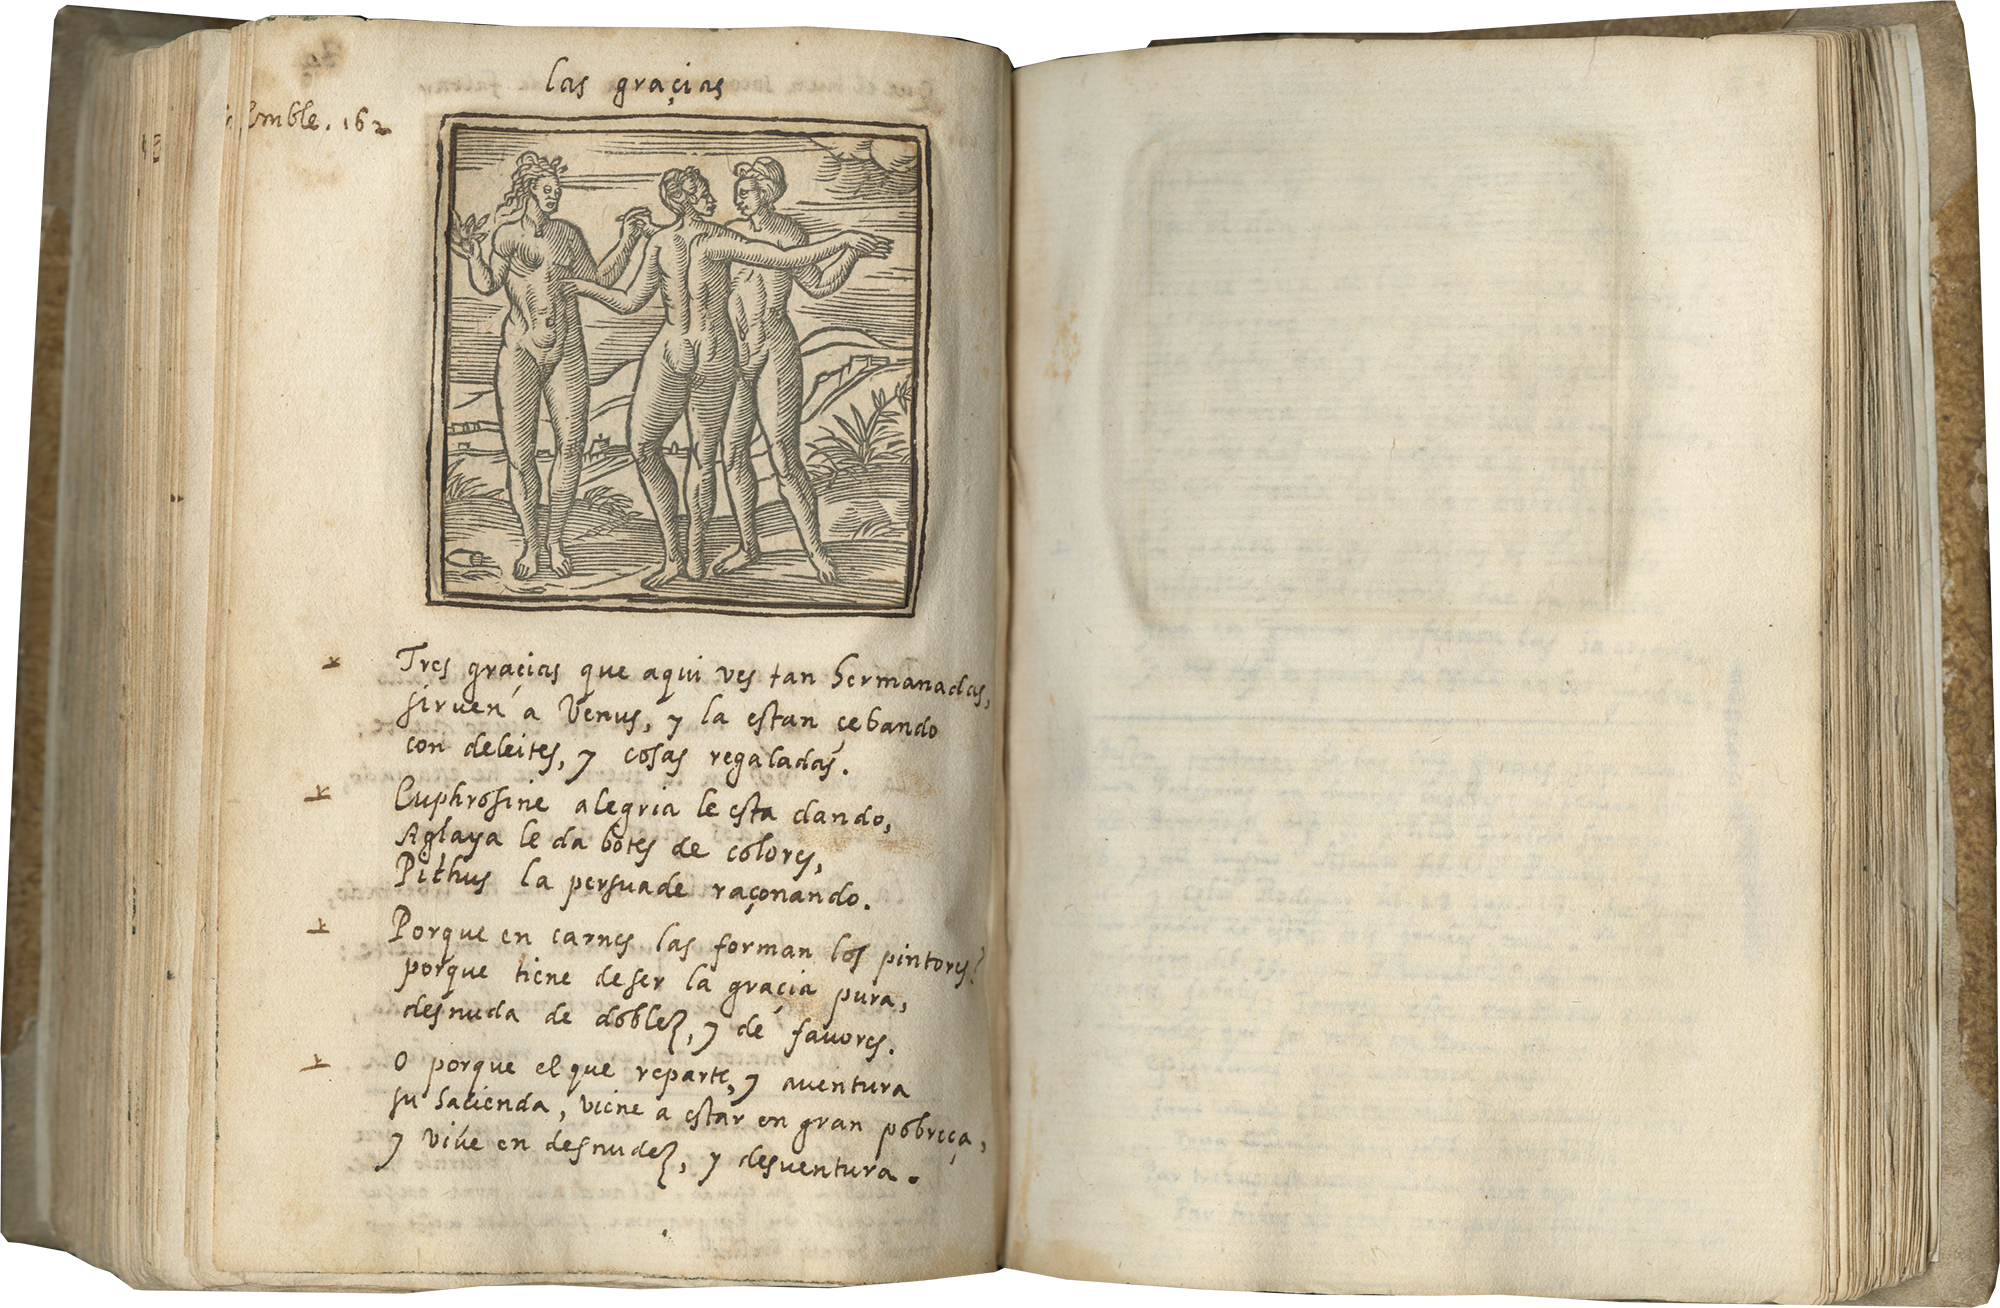 las graçias
Emble. 162
Tres graçias que aqui ves tan hermanadas,
siruen a Venus, y la estan çebando
con deleites, y cosas regaladas.
Euphrosine alegria le esta dando,
Aglaya le da botes de colores,
Pithus la persuade raçonando.
Porque en carnes las forman los pintores?
porque tiene de ser la graçia pura,
desnuda de doblez, y de fauores.
O porque el que reparte, y auentura
su hacienda, viene a estar en gran pobreça,
y viue en desnudez, y desuentura.